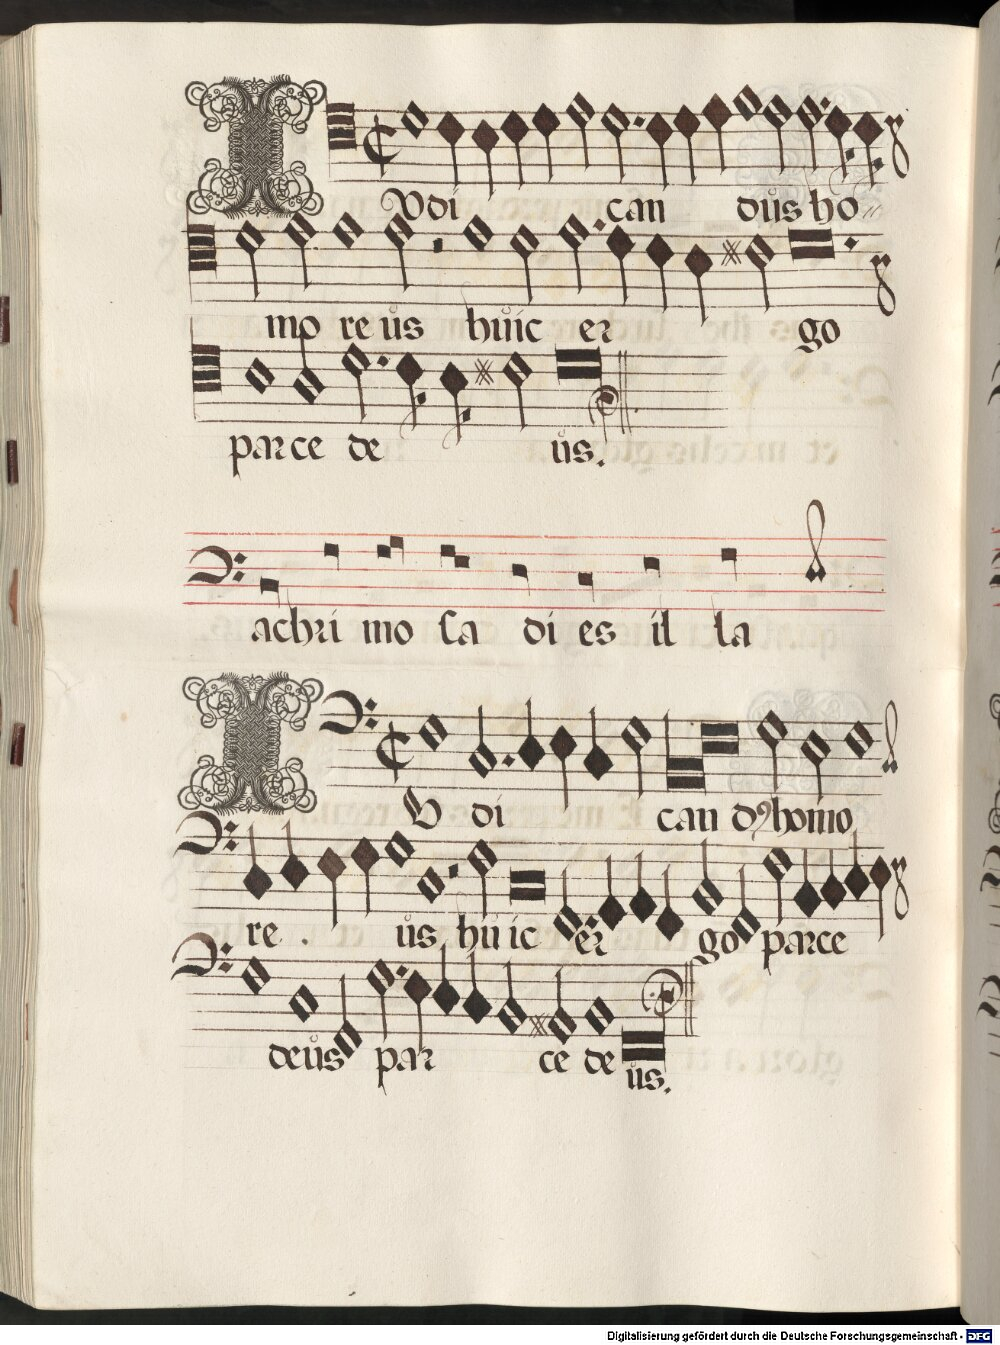 IVdi can dus ho
mo re us huic er go
parce de us.
achri mo sa di es il la
IV di can dꝰ homo
re . us huic er go parce
deus par ce de us.
Digitalisierung gefördert durch die Deutsche Forschungsgemeinschaft - DFG